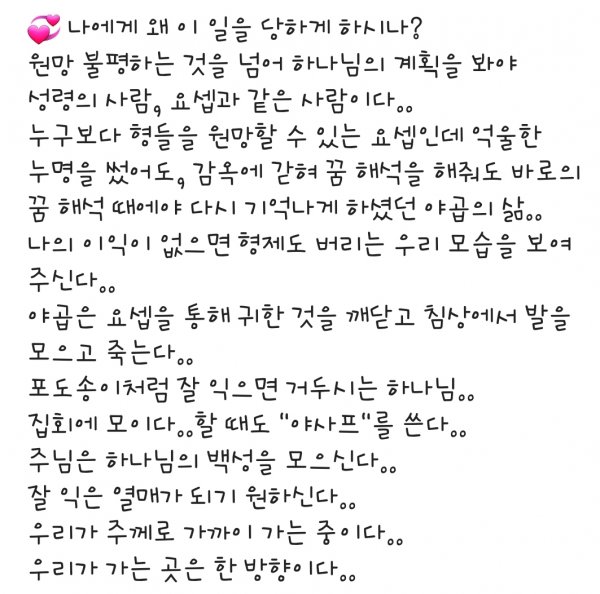 💞 나에게 왜 이 일을 당하게 하시나?
원망 불평하는 것을 넘어 하나님의 계획을 봐야
성령의 사람, 요셉과 같은 사람이다..
누구보다 형들을 원망할 수 있는 요셉인데 억울한
누명을 썼어도, 감옥에 갇혀 꿈 해석을 해줘도 바로의
꿈 해석 때에야 다시 기억나게 하셨던 야곱의 삶..
나의 이익이 없으면 형제도 버리는 우리 모습을 보여
주신다..
야곱은 요셉을 통해 귀한 것을 깨닫고 침상에서 발을
모으고 죽는다..
포도송이처럼 잘 익으면 거두시는 하나님..
집회에 모이다..할 때도 "야사프"를 쓴다..
주님은 하나님의 백성을 모으신다..
잘 익은 열매가 되기 원하신다..
우리가 주께로 가까이 가는 중이다..
우리가 가는 곳은 한 방향이다..